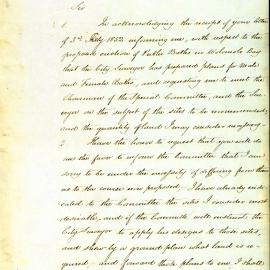 Sir
1. In acknowledging the receipt of your letter
of 3rd Feby 1852 informing me, with respect to the
proposed erection of Public Baths in Woolloomooloo Bay
that the City Surveyor has prepared plans for Male
and Female Baths, and requesting me to meet the
Chairman of the Special Committee, and the Sur-
veyor on the subject of the sites to be recommended,
and the quantity of land I may consider necessary—
2. I have the honor to request that you will do
me the favor to inform the Committee that I am
sorry to be under the necessity of differing from them
as to the course now proposed, I have already indi-
cated to the Committee the sites I consider most
desirable, and if the Committee will instruct the
City Surveyor to apply his designs to those sites,
and show by a ground plan what land is re-
quired, and forward those plans to me I shall